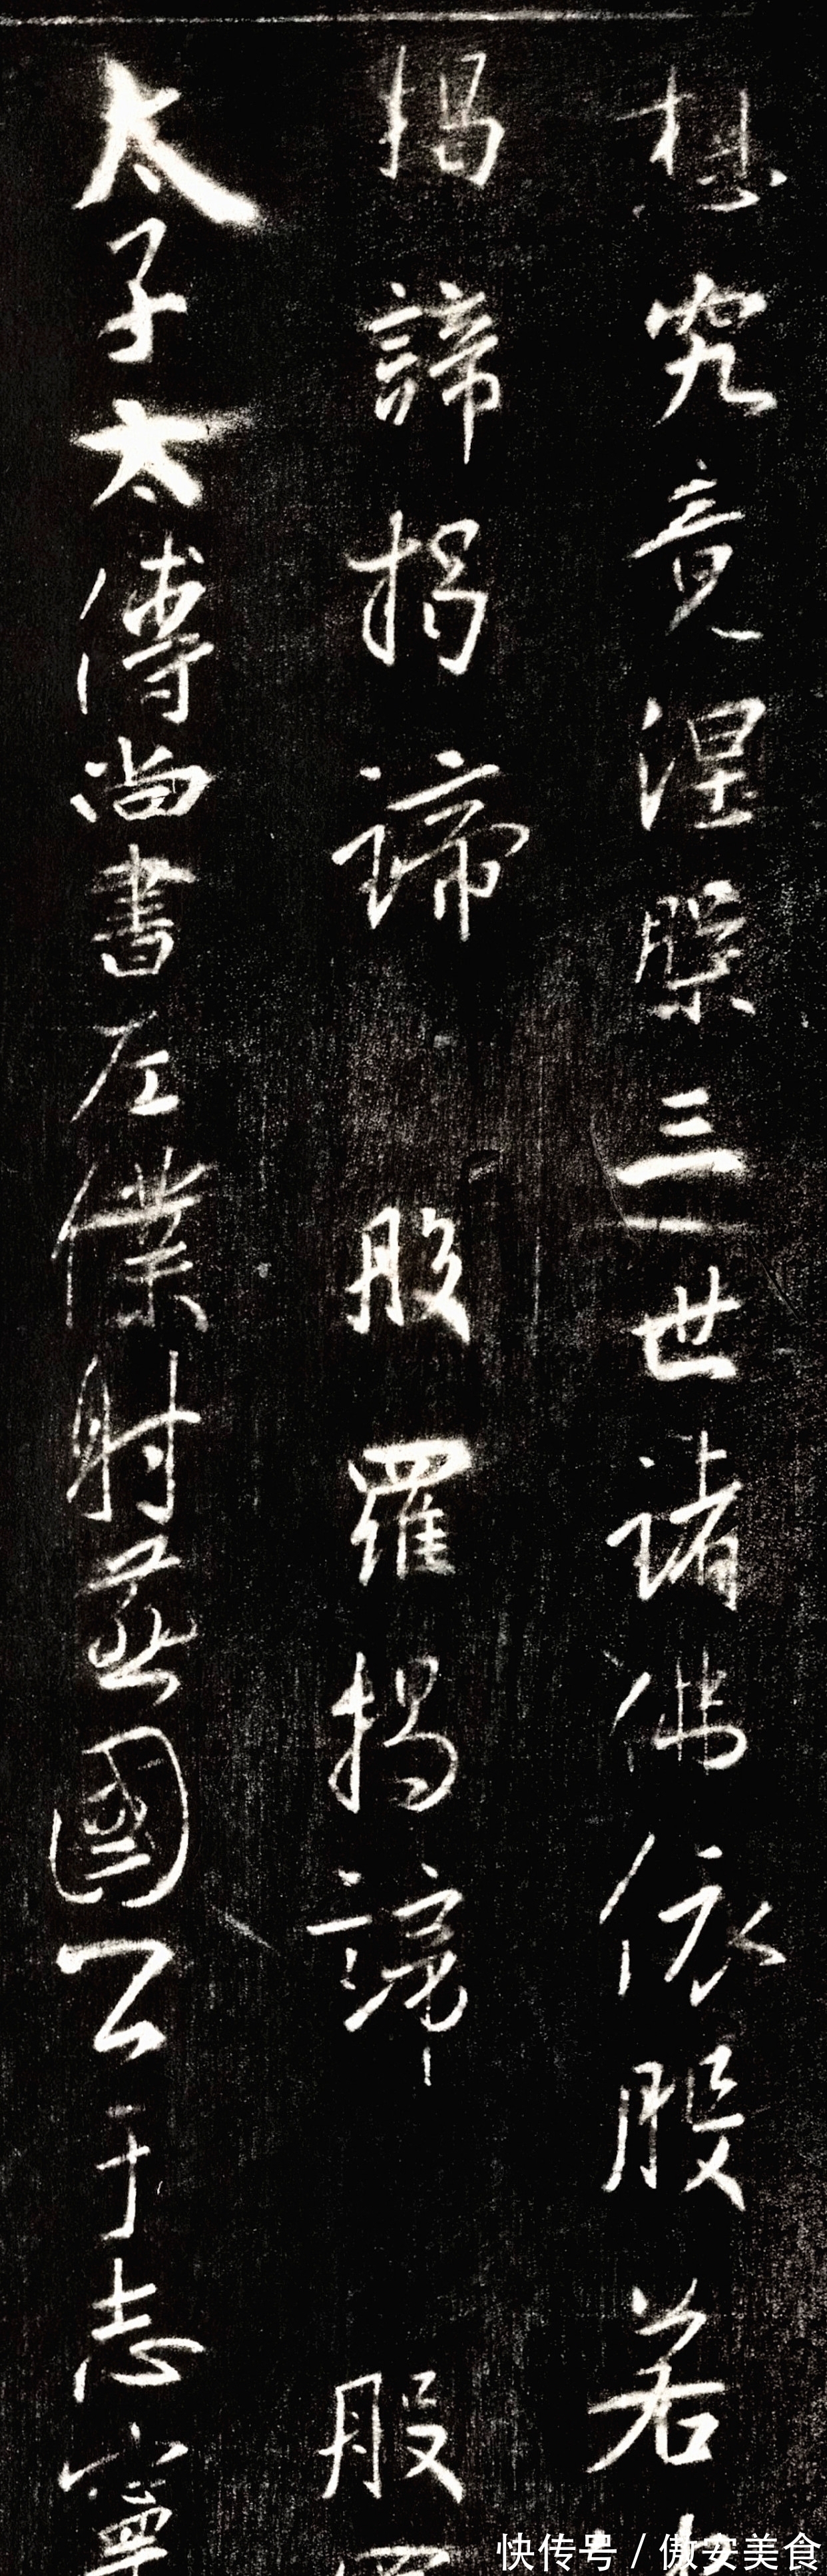 想究竟涅槃三世諸佛依般若
揭諦揭諦 般羅揭諦 般
太子太傅尚書左僕射燕國公于志寧
快传号 / 傲安美食